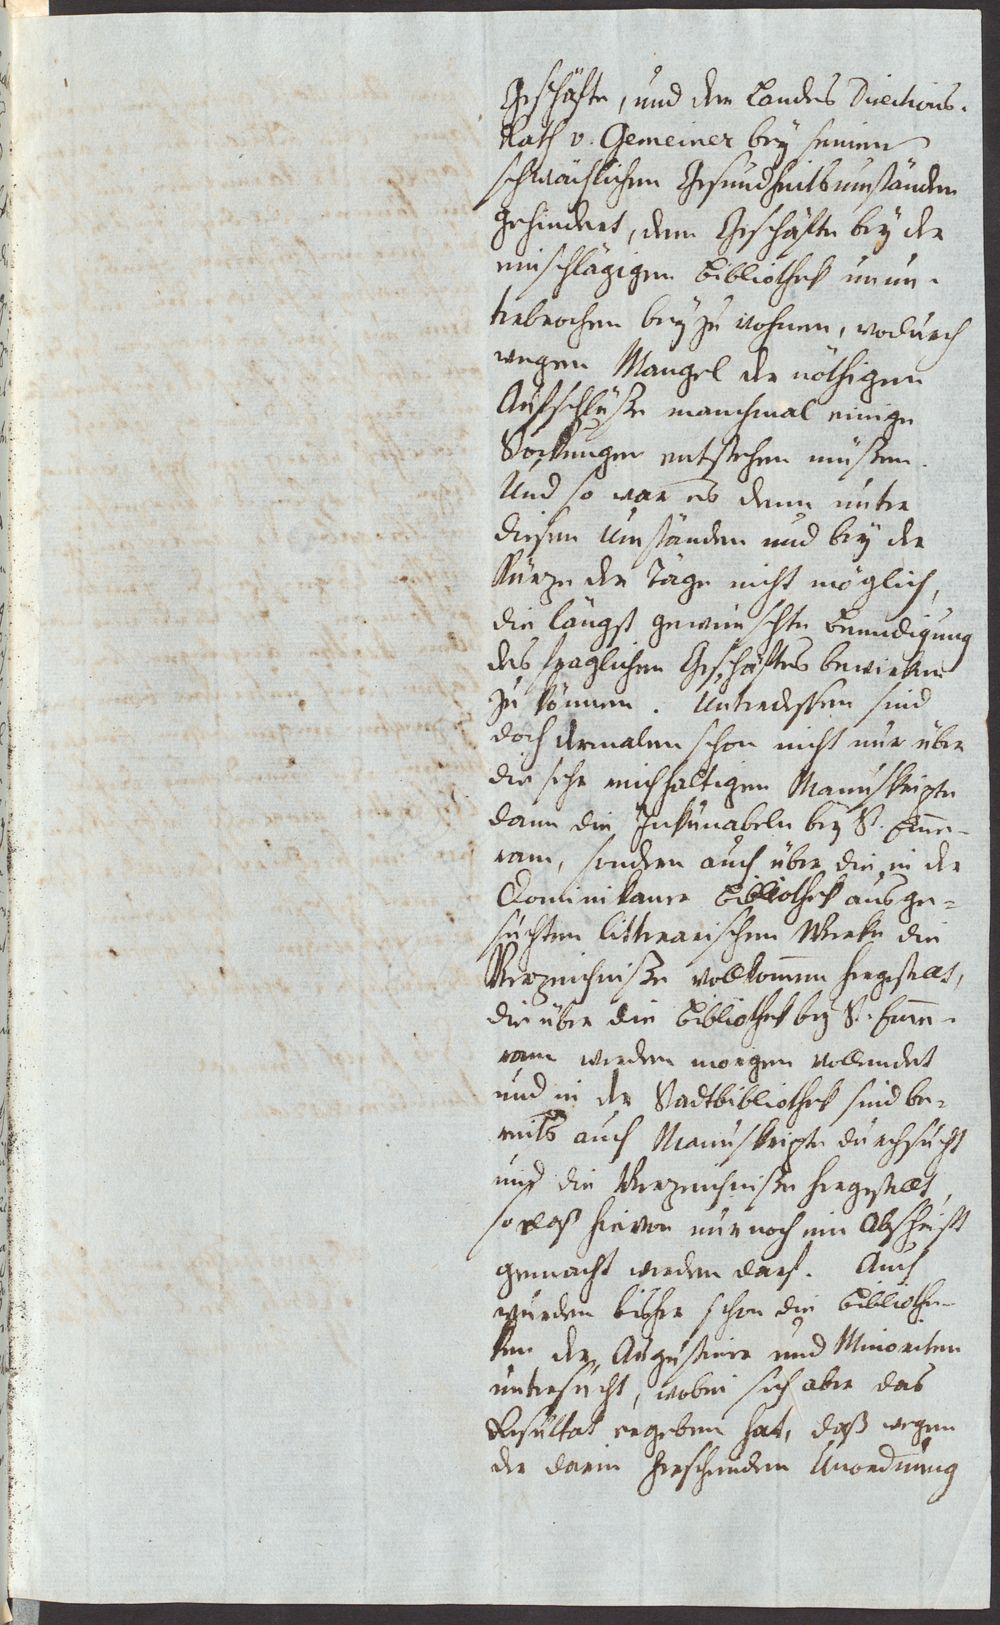 Geschäfte, und der Landes Directions-
Rath v. Gemeiner bey seinen
schwächlichen Gesundheitsumständen
gehindert, dem Geschäfte bey der
einschlägigen Bibliothek unun-
terbrochen bey zu wohnen, wodurch
wegen Mangel der nöthigen
Aufschlüße manchmal einige
Stockungen entstehen müßen.
Und so war es denn unter
diesen Umständen und bey der
Kürze der Täge nicht möglich,
die längst gewünschte Beendigung
des fraglichen Geschäftes bewirken
zu können. Unterdessen sind
doch dermalen schon nicht nur über
die sehr reichhaltigen Manuskripte
dann die Inkunabeln bey St. Emme-
ram, sondern auch über die in der
Dominikaner Bibliothek ausge-
suchten litterarischen Werke die
Verzeichniße vollkom̄en hergestellt,
die über die Bibliothek bey St. Em̄e-
ram werden morgen vollendet
und in der Stadtbibliothek sind be-
reits auch Manuskripte durchsucht
und die Verzeichniße hergestellt,
so daß hievon nur noch ein Abschrift
gemacht werden darf. Auch
wurden bisher schon die Bibliothe-
ken der Augustiner und Minoriten
untersucht, wobei sich aber das
Resultat ergeben hat, daß wegen
der darin herschenden Unordnung